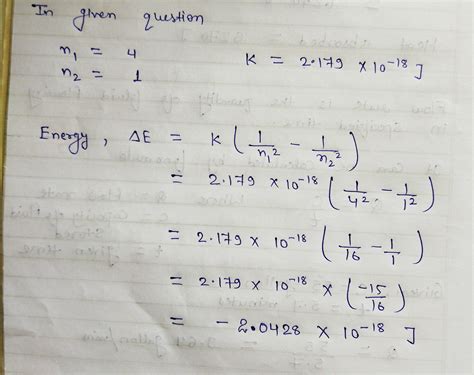 In given question
n₁ = 4
n₂ = 1
K = 2.179 × 10⁻¹⁸ J
Energy, ΔE = K (1/n₁² - 1/n₂²)
= 2.179 × 10⁻¹⁸ (1/4² - 1/1²)
= 2.179 × 10⁻¹⁸ (1/16 - 1/1)
= 2.179 × 10⁻¹⁸ × (-15/16)
= - 2.0428 × 10⁻¹⁸ J